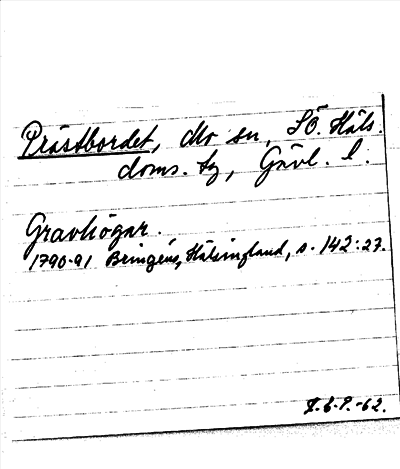 Prästbordet, Mo sn, SÖ. Häls.
doms. tg, Gävl. l.
Gravhögar.
1790-91 Bringéus, Hälsingland, s. 142:27.
-62.